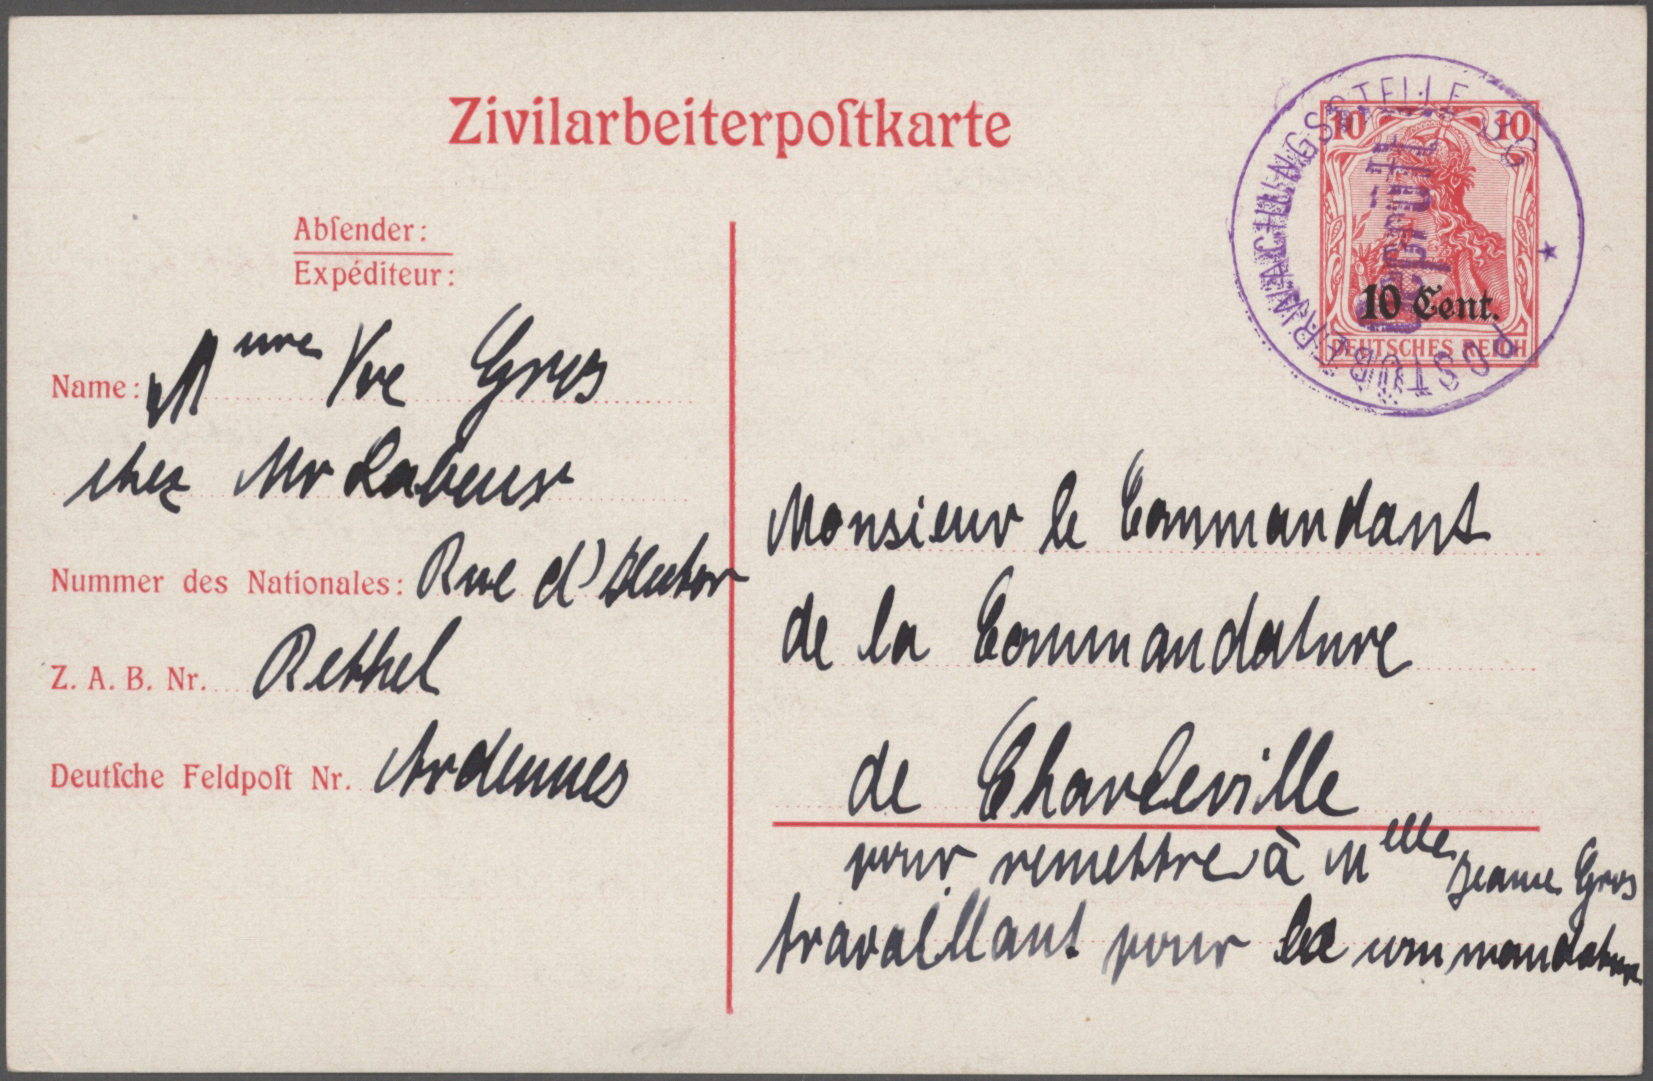 Zivilarbeiterpoſtkarte
Abſender:
Expéditeur:
Name: Mme Vve Gros
chez Mr
Nummer des Nationales: Rue d'
Z. A. B. Nr. Rethel
Deutſche Feldpoſt Nr. Ardennes
10 10
10 Cent.
DEUTSCHES REICH
POSTÜBERWACHUNGSSTELLE
Geprüft
Monsieur le Commandant
de la Commandature
de Charleville
pour remettre à Melle Jeanne Gros
travaillant pour la commandature